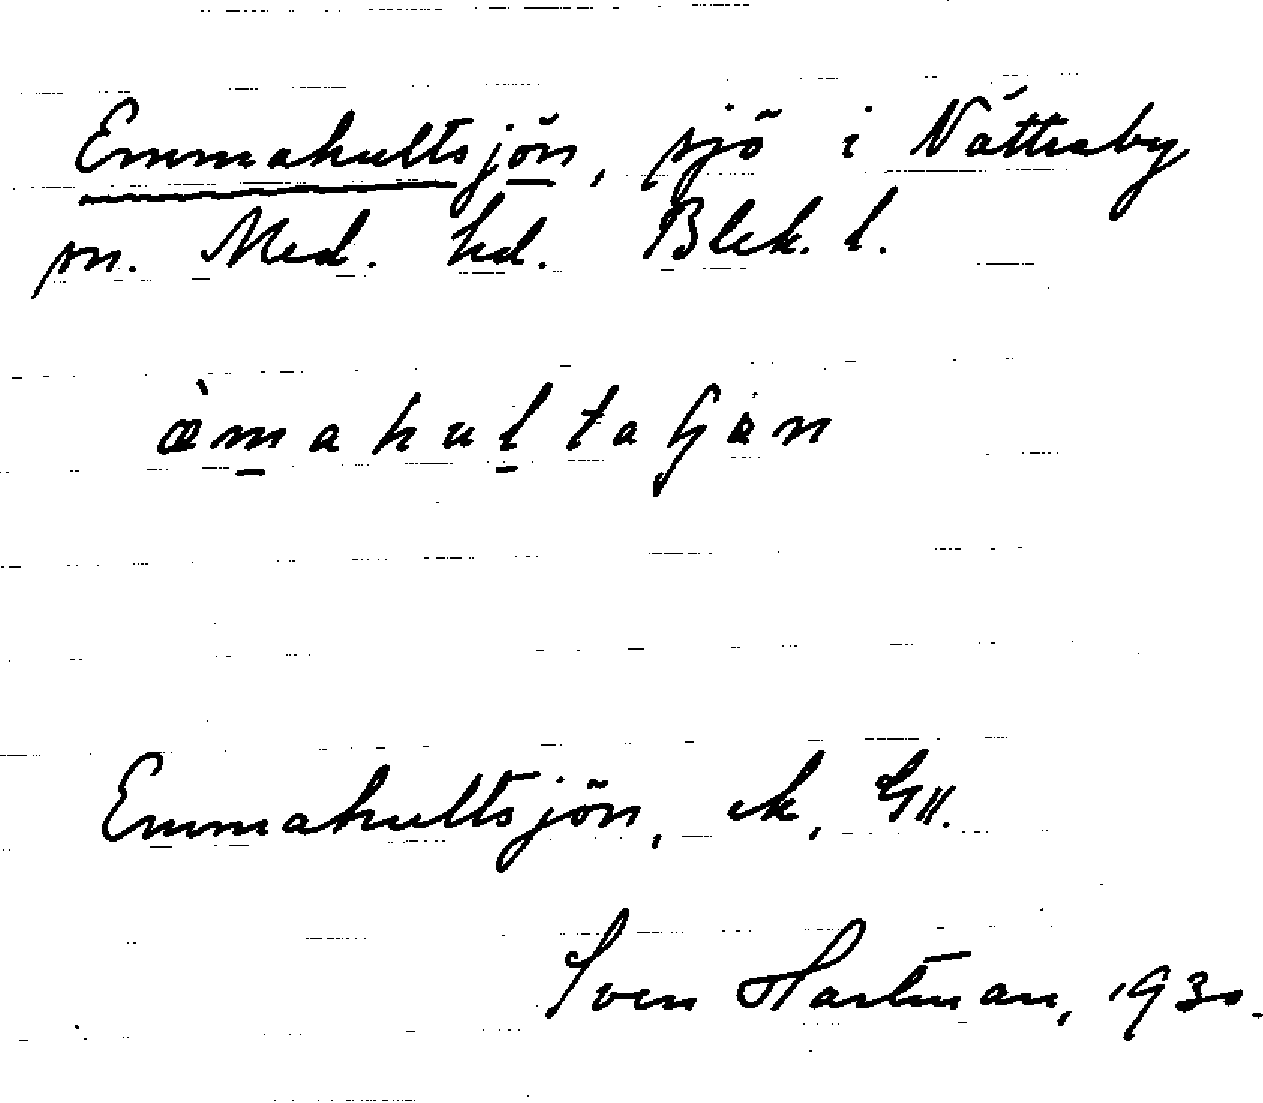 Emmahultsjön, sjö i Nättraby
sn. Med. hd. Blek. l.
æ̀mahulta
Emmahultsjön, ek,
Sven Hartman, 1930.